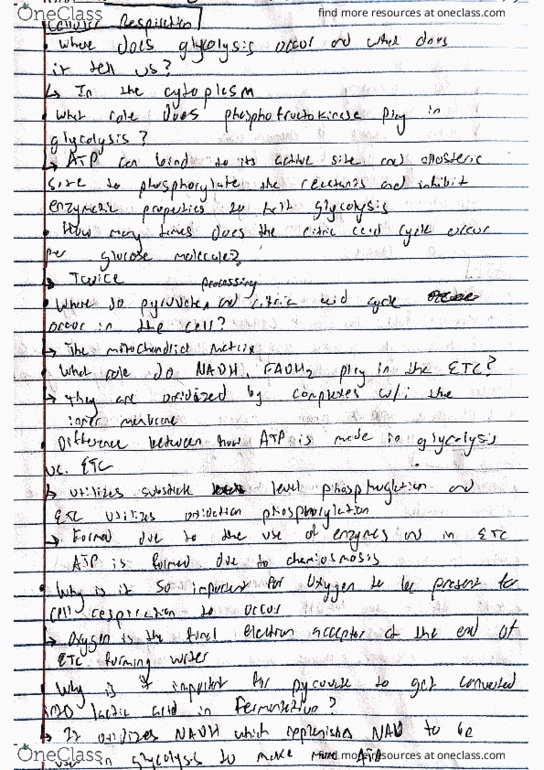 OneClass
find more resources at oneclass.com
Cellular Respiration
• Where does glycolysis occur and what does
it tell us?
↳ In the cytoplasm
• What role does phosphofructokinase play in
glycolysis?
→ ATP can bind to its active site and allosteric
site to phosphorylate the reactants and inhibit
enzymatic properties to halt glycolysis
• How many times does the citric acid cycle occur
per glucose molecule?
↳ Twice
processing
• Where do pyruvate and citric acid cycle
occur in the cell?
↳ The mitochondrial matrix
• What role do NADH, FADH₂ play in the ETC?
→ They are oxidized by complexes w/i the
inner membrane
• Difference between how ATP is made in glycolysis
vs. ETC
↳ utilizes substrate level phosphorylation and
ETC utilizes oxidation phosphorylation
→ Formed due to the use of enzymes and in ETC
ATP is formed due to chemiosmosis
• Why is it so important for Oxygen to be present for
cell respiration to occur
→ Oxygen is the final electron acceptor at the end of
ETC forming water
Why is it important for pyruvate to get converted
to lactic acid in fermentation?
↳ It oxidizes NADH which replenishes NAD to be
in glycolysis to make ATP
OneClass
find more resources at oneclass.com